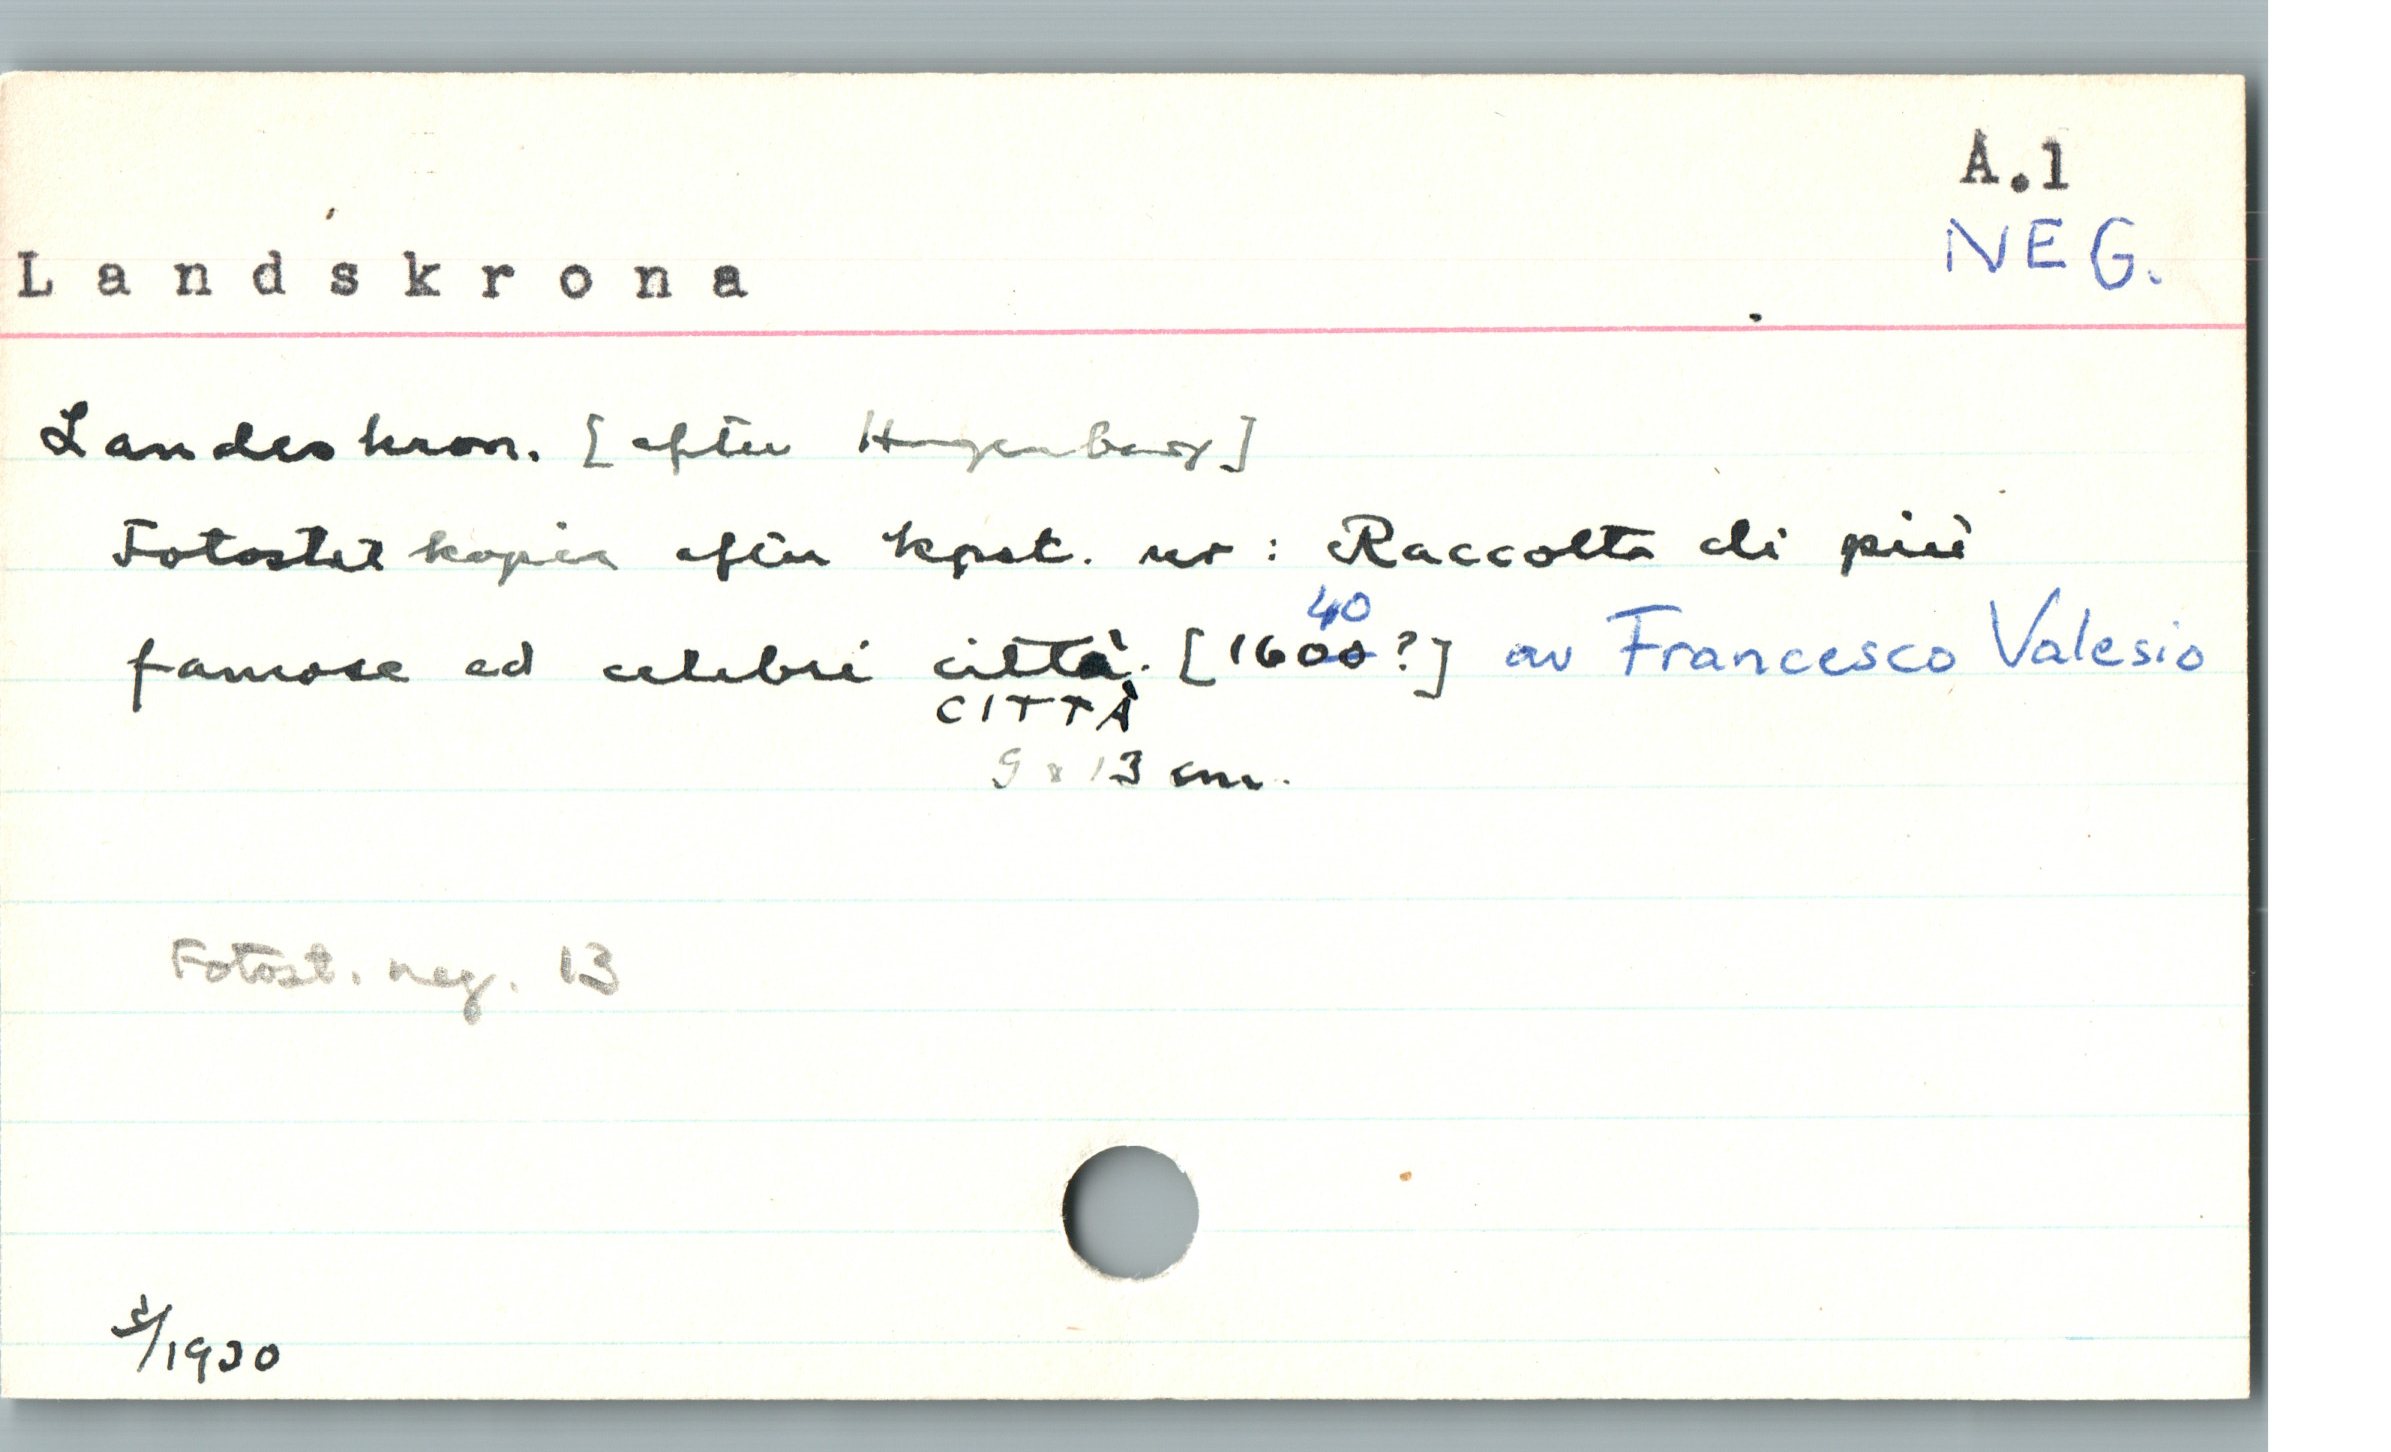 A.1
NEG.
Landskrona
Landeskron. [efter Hogenberg]
Fotostatkopia efter kpst. ur: Raccolta di più
40
famose ed celebri città. [1600?] av Francesco Valesio
CITTÀ
9 x 13 cm.
Fotost. neg. 13
/1930